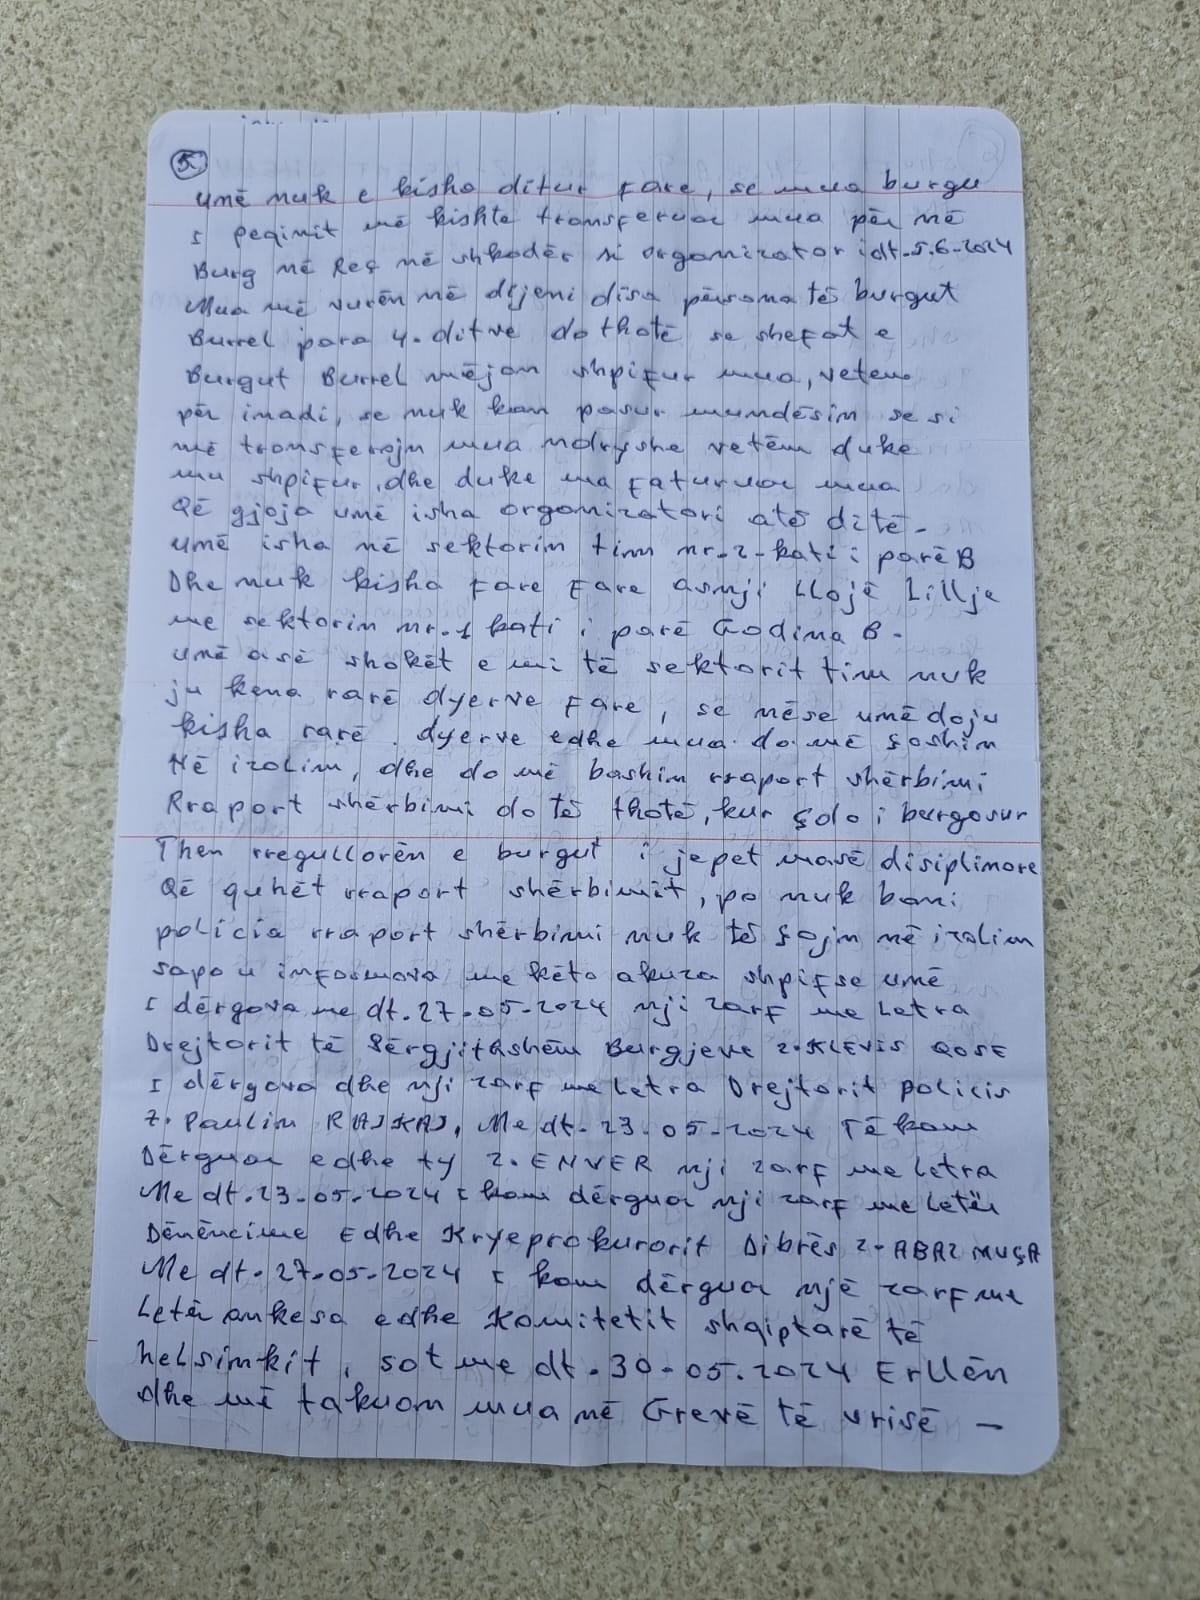 5.
umë nuk e kisha ditur fare, se mua burgu
i peqinit më kishte transferuar mua për në
Burg në Reç në shkodër si organizator i dt.5.6-2024
Mua më vurën në dijeni disa përsona të burgut
Burrel para 4. ditve do thotë se shefat e
Burgut Burrel mëjan shpifur mua, vetem
për inadi, se nuk kan pasur mundësim se si
më transferojn mua ndryshe vetëm duke
mu shpifur, dhe duke ma faturuar mua
Që gjoja umë isha organizatori atë ditë.
umë isha në sektorin tim nr.2-kati i parë B
Dhe nuk kisha fare fare asnji llojë lillje
me sektorin nr.1 kati i parë Godina B.
umë asë shokët e mi të sektorit tim nuk
ju kena rarë dyerve fare, se nëse umë doju
kisha rarë dyerve edhe mua do më çoshim
Në izolim, dhe do më bashim rraport shërbimi
Rraport shërbimi do të thotë, kur çdo i burgosur
Then rregullorën e burgut i jepet masë disiplinore
Që quhët rraport shërbimit, po nuk bani
policia rraport shërbimi nuk të çojn në izolim
sapo u informova me këto akuza shpifse umë
I dërgova me dt.27.05-2024 nji zarf me Letra
Drejtorit të Përgjithshëm Burgjeve z.KLEVIS QOSE
I dërgova dhe nji zarf me Letra Drejtorit policis
z. Paulin RAJKAJ, Me dt.23.05-2024 Të kam
Dërguar edhe ty z. ENVER nji zarf me Letra
Me dt.23-05-2024 i kam dërguar nji zarf me Letër
Dënëncime Edhe Kryeprokurorit Dibrës z. ABAZ MUÇA
Me dt.27-05-2024 I kam dërguar një zarf me
Letër ankesa edhe Komitetit shqiptarë të
helsimkit, sot me dt.30-05.2024 Erdhën
dhe më takuan mua në Grevë të urisë -